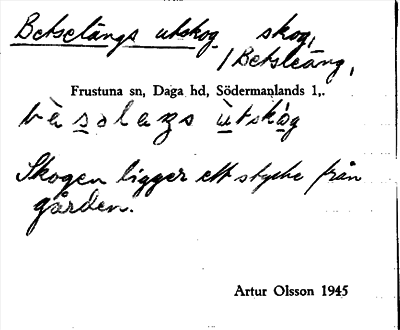 Betselängs utskog skog,
/Betsleäng,
Frustuna sn, Daga hd, Södermanlands l,.
bè s ɔ l a ŋ s ùtskò̱g
Skogen ligger ett stycke från
gården.
Artur Olsson 1945